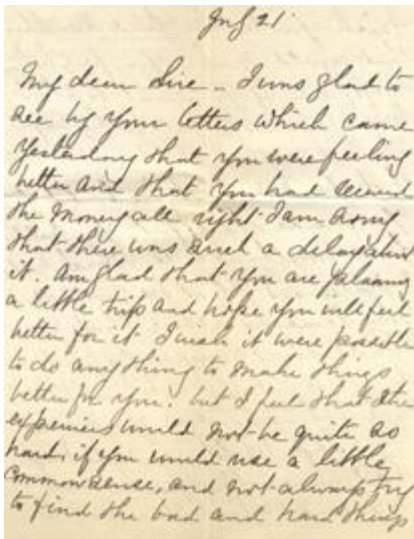 July 21.
My dear Sire - I was glad to
see by your letters which came
yesterday that you were feeling
better and that you had received
the money all right I am sorry
that there was such a delay about
it. Am glad that you are planning
a little trip and hope you will feel
better for it I wish it were possible
to do anything to make things
better for you. but I feel that the
experiences would not be quite so
hard, if you would use a little
common sense, and not always try
to find the bad and hard things